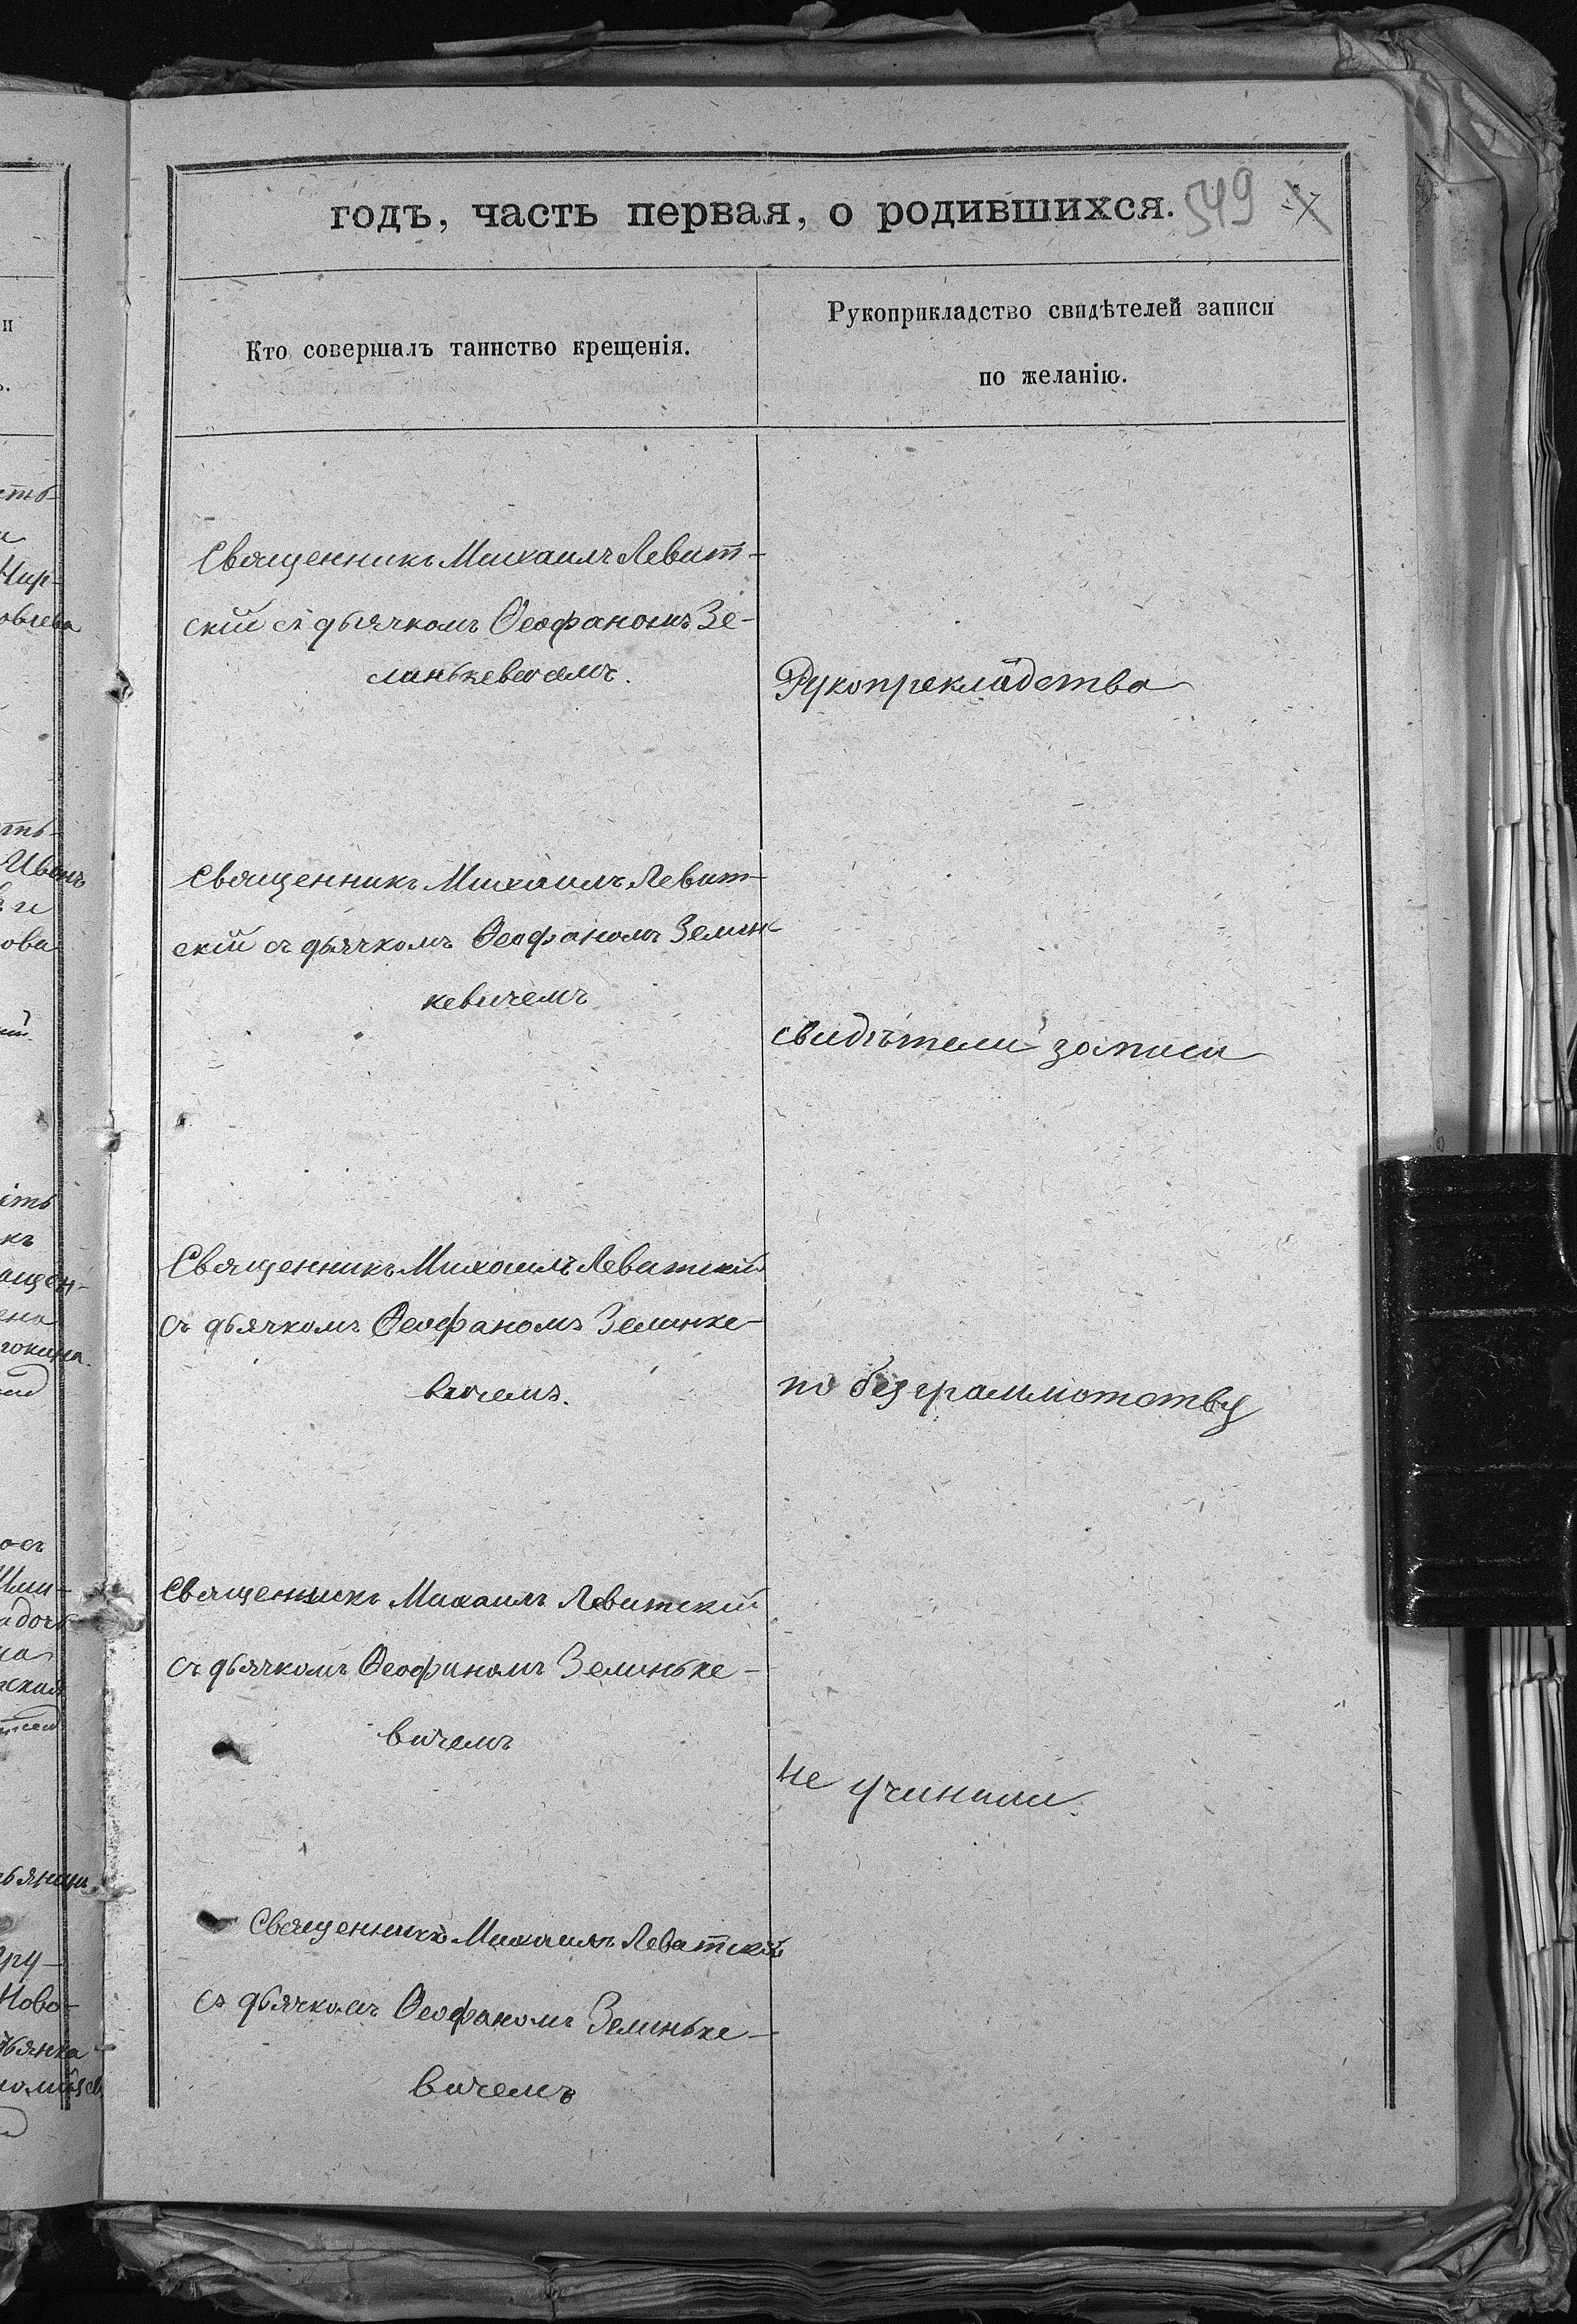 годъ, часть первая, о родившихся. 549
Кто совершалъ таинство крещенія.
Рукоприкладство свидѣтелей записи
по желанію.
Священникъ Михаилъ Левит-
скій съ дьячкомъ Ѳеофаномъ Зе-
линькевичемъ.
Рукоприкладства
Священникъ Михаилъ Левит-
скій съ дьячкомъ Ѳеофаномъ Зелин-
кевичемъ
свидѣтели записи
Священникъ Михаилъ Левитскій
съ дьячкомъ Ѳеофаномъ Зелинке-
вичемъ.
по безграммотству
Священникъ Михаилъ Левитскій
съ дьячкомъ Ѳеофаномъ Зелиньке-
вичемъ
не учинили.
Священникъ Михаилъ Левитскій
съ дьячкомъ Ѳеофаномъ Зелиньке-
вичемъ